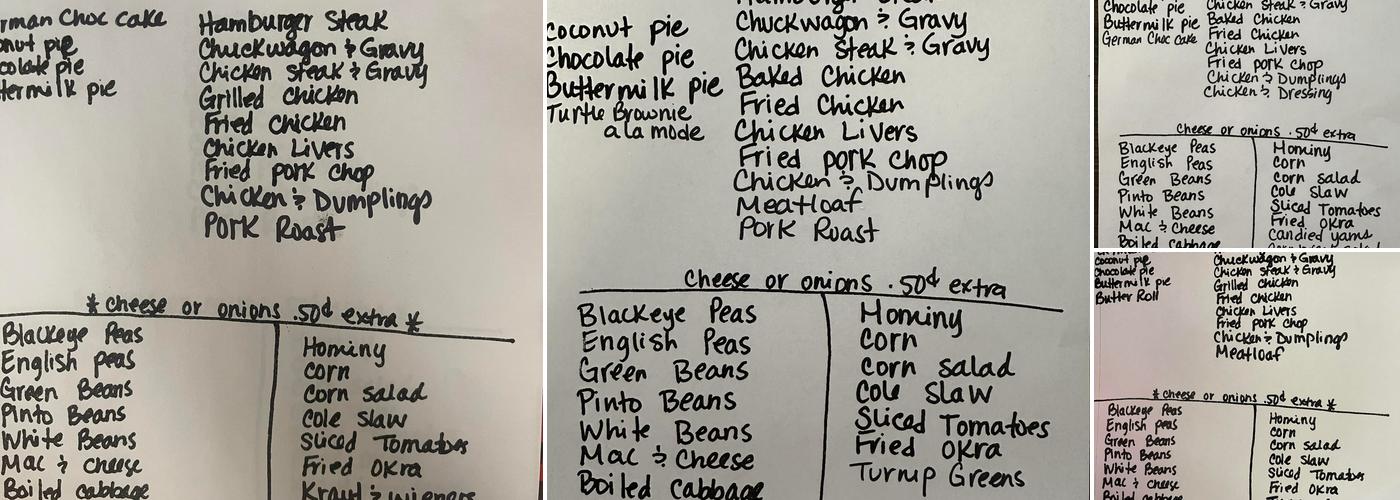 rman Choc Cake
onut pie
colate pie
termilk pie
Hamburger Steak
Chuckwagon & Gravy
Chicken Steak & Gravy
Grilled Chicken
Fried Chicken
Chicken Livers
Fried Pork Chop
Chicken & Dumplings
Pork Roast
* Cheese or onions .50¢ extra *
Blackeye Peas
English Peas
Green Beans
Pinto Beans
White Beans
Mac & Cheese
Boiled Cabbage
Hominy
Corn
Corn Salad
Cole Slaw
Sliced Tomatoes
Fried Okra
Kraut & Wieners
Coconut pie
Chocolate pie
Buttermilk pie
Turtle Brownie
a la mode
Hamburger Steak
Chuckwagon & Gravy
Chicken Steak & Gravy
Baked Chicken
Fried Chicken
Chicken Livers
Fried Pork Chop
Chicken & Dumplings
Meatloaf
Pork Roast
Cheese or onions .50¢ extra
Blackeye Peas
English Peas
Green Beans
Pinto Beans
White Beans
Mac & Cheese
Boiled Cabbage
Hominy
Corn
Corn Salad
Cole Slaw
Sliced Tomatoes
Fried Okra
Turnup Greens
Chocolate pie
Buttermilk pie
German Choc Cake
Chicken Steak & Gravy
Baked Chicken
Fried Chicken
Chicken Livers
Fried Pork Chop
Chicken & Dumplings
Chicken & Dressing
Cheese or onions .50¢ extra
Blackeye Peas
English Peas
Green Beans
Pinto Beans
White Beans
Mac & Cheese
Boiled Cabbage
Hominy
Corn
Corn Salad
Cole Slaw
Sliced Tomatoes
Fried Okra
Candied Yams
Coconut pie
Chocolate pie
Buttermilk pie
Butter Roll
Chuckwagon & Gravy
Chicken Steak & Gravy
Grilled Chicken
Fried Chicken
Chicken Livers
Fried Pork Chop
Chicken & Dumplings
Meatloaf
* Cheese or onions .50¢ extra *
Blackeye Peas
English Peas
Green Beans
Pinto Beans
White Beans
Mac & Cheese
Boiled Cabbage
Hominy
Corn
Corn Salad
Cole Slaw
Sliced Tomatoes
Fried Okra